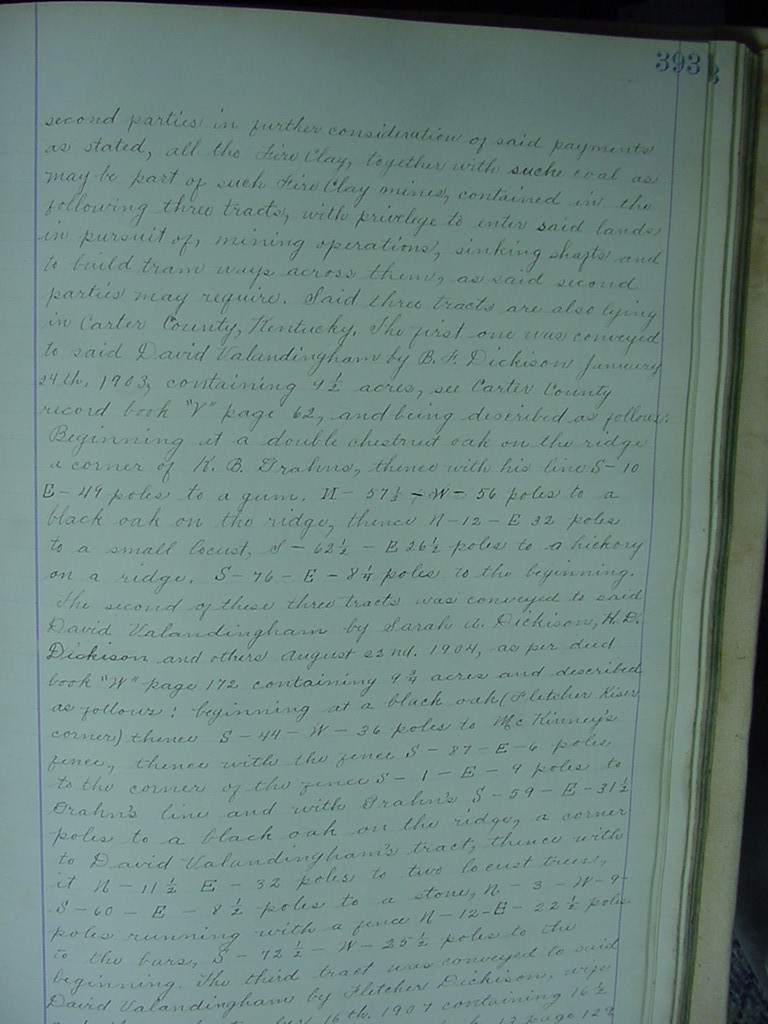 393
second parties in further consideration of said payments
as stated, all the Fire Clay, together with suche coal as
may be part of such Fire Clay mines, contained in the
following three tracts, with privilege to enter said lands
in pursuit of, mining operations, sinking shafts and
to build tram ways across them, as said second
parties may require. Said three tracts are also lying
in Carter County, Kentucky. The first one was conveyed
to said David Valandingham by B. F. Dickison January
24th. 1903, containing 4 1/2 acres, see Carter County
record book "V" page 62, and being described as follows.
Beginning at a double chestnut oak on the ridge
a corner of K. B. Grahns, thence with his line S-10
E-49 poles to a gum. N- 57 1/2 - W- 56 poles to a
black oak on the ridge, thence N-12-E 32 poles
to a small locust, S-62 1/2 - E 26 1/2 poles to a hickory
on a ridge. S-76-E-8 1/4 poles to the beginning.
The second of these three tracts was conveyed to said
David Valandingham by Sarah A. Dickison, H. D.
Dickison and others August 22nd. 1904, as per deed
book "W" page 172 containing 9 3/4 acres and described
as follows: beginning at a black oak (Fletcher Kiser
corner) thence S-44-W-36 poles to McKinney's
fence, thence with the fence S-87-E-6 poles
to the corner of the fence S-1-E-9 poles to
Grahn's line and with Grahn's S-59-E-31 1/2
poles to a black oak on the ridge, a corner
to David Valandingham's tract, thence with
it N-11 1/2 E-32 poles to two locust trees,
S-60-E-8 1/2 poles to a stone, N-3-W-9-
poles running with a fence N-12-E-22 1/2 poles
to the bars, S-72 1/2-W-25 1/2 poles to the
beginning. The third tract was conveyed to said
David Valandingham by Fletcher Dickison, wife
16th. 1907 containing 16 1/2
page